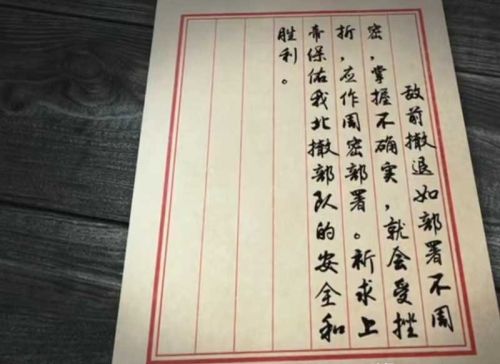 敌前撤退如部署不周
密，掌握不确实，就会受挫
折，应作周密部署。祈求上
帝保佑我北撤部队的安全和
胜利。